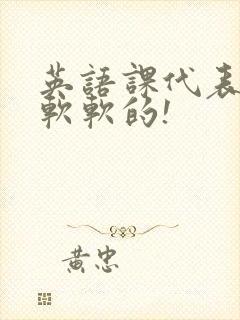 英語課代表
軟軟的!
黃忠